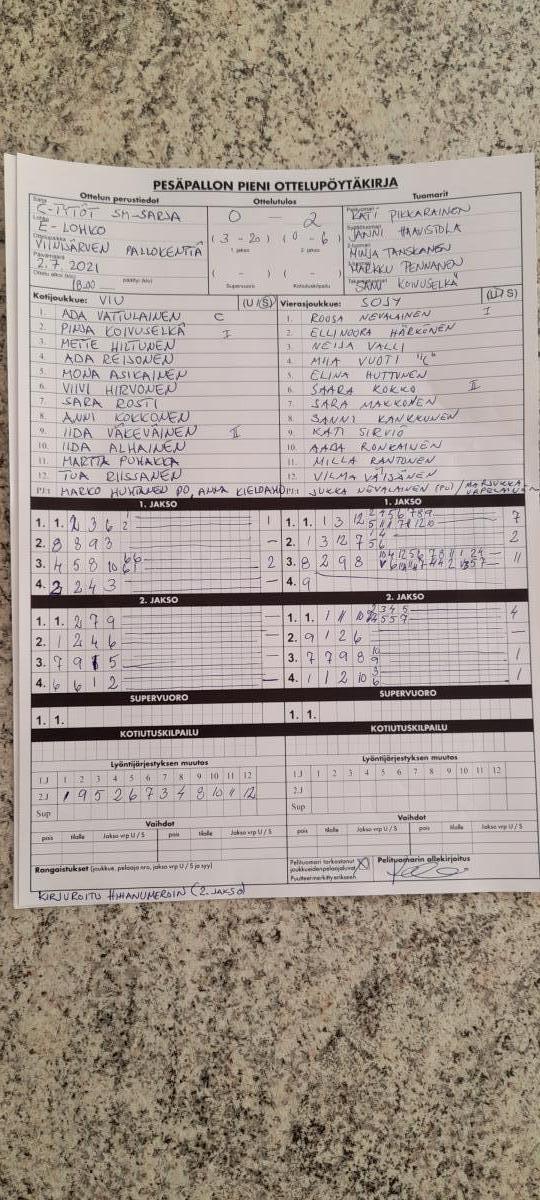 PESÄPALLON PIENI OTTELUPÖYTÄKIRJA
Ottelun perustiedot Ottelutulos Tuomarit
Sarja C-TYTÖT SM-SARJA 0 — 2 KATI PIKKARAINEN
Lohko E-LOHKO JANNI HAAVISTOLA
VIINIJÄRVEN PALLOKENTTÄ (3 - 20) (0 - 6) MINJA TANSKANEN
1. jakso 2. jakso
Päivämäärä 2.7.2021 MARKKU PENNANEN
18.00 ( - ) ( - ) SAMI KOIVUSELKÄ
Supervuoro Kotiutuskilpailu
Kotijoukkue: VIU (U / S) Vierasjoukkue: SOJY (U / S)
1. ADA VATTULAINEN C 1. ROOSA NEVALAINEN I
2. PINJA KOIVUSELKÄ I 2. ELLINOORA HÄRKÖNEN
3. METTE HILTUNEN 3. NEIJA VALLI
4. ADA REIJONEN 4. MIIA VUOTI "C"
5. MONA ASIKAINEN 5. ELINA HUTTUNEN
6. VIIVI HIRVONEN 6. SAARA KOKKO II
7. SARA ROSTI 7. SARA MAKKONEN
8. ANNI KOKKONEN 8. SANNI KANKKUNEN
9. IIDA VÄKEVÄINEN II 9. KATI SIRVIÖ
10. IIDA ALHAINEN 10. AADA RONKAINEN
11. MARTTA PUHAKKA 11. MILLA RANTONEN
12. TUA RIISSANEN 12. VILMA VÄISÄNEN
PJ: MARKO HUHTANEN PJ, ANNA JUKKA NEVALAINEN (PJ) / MARJUKKA
1. JAKSO 1. JAKSO
1. 1. 2 3 6 2 1 1. 1. 1 3 12 7
2. 8 8 9 3 — 2. 1 3 12 7 2
3. 4 5 8 10 2 3. 8 2 9 8 11
4. 3 2 4 3 — 4. 9
2. JAKSO 2. JAKSO
1. 1. 2 7 9 — 1. 1. 1 11 10 4
2. 1 2 4 6 — 2. 9 1 2 6 —
3. 7 9 1 5 — 3. 7 7 9 8 1
4. 6 6 1 2 — 4. 1 1 2 10 1
SUPERVUORO SUPERVUORO
1. 1. 1. 1.
KOTIUTUSKILPAILU KOTIUTUSKILPAILU
Lyöntijärjestyksen muutos Lyöntijärjestyksen muutos
1.J 1 2 3 4 5 6 7 8 9 10 11 12 1.J 1 2 3 4 5 6 7 8 9 10 11 12
2.J 1 9 5 2 6 7 3 4 8 10 11 12 2.J
Sup Sup
Vaihdot Vaihdot
pois tilalle Jakso vrp U / S pois tilalle Jakso vrp U / S pois tilalle Jakso vrp U / S pois tilalle Jakso vrp U / S
Rangaistukset (joukkue, pelaaja nro, jakso vrp U / S ja syy) Pelituomari tarkastanut joukkueiden pelaajaluvat X Pelituomarin allekirjoitus
Puutteet merkitty erikseen
KIRJUROITU HIHANUMEROIN (2. JAKSO)